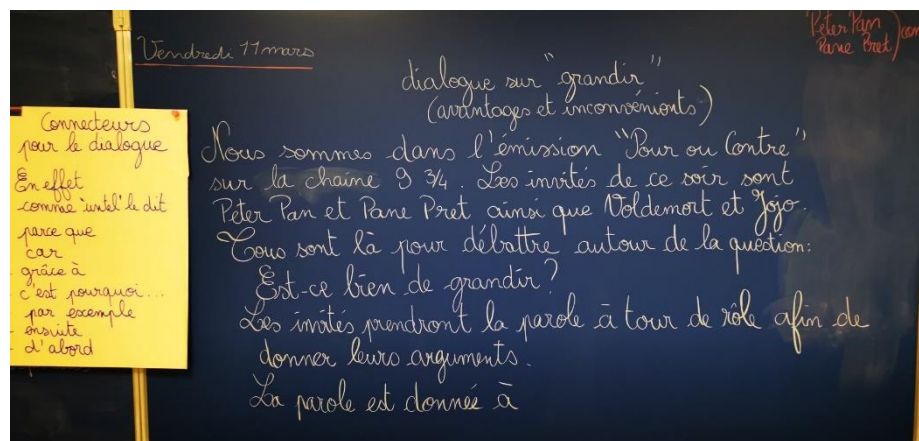 Vendredi 11 mars
Peter Pan
Pane Pret
dialogue sur "grandir"
(avantages et inconvénients)
Connecteurs
pour le dialogue
En effet
comme "untel" le dit
parce que
car
- grâce à
- c'est pourquoi...
- par exemple
- ensuite
- d'abord
Nous sommes dans l'émission "Pour ou Contre"
sur la chaine 9 3/4. Les invités de ce soir sont
Peter Pan et Pane Pret ainsi que Voldemort et Jojo.
Tous sont là pour débattre autour de la question:
Est-ce bien de grandir?
Les invités prendront la parole à tour de rôle afin de
donner leurs arguments.
La parole est donnée à